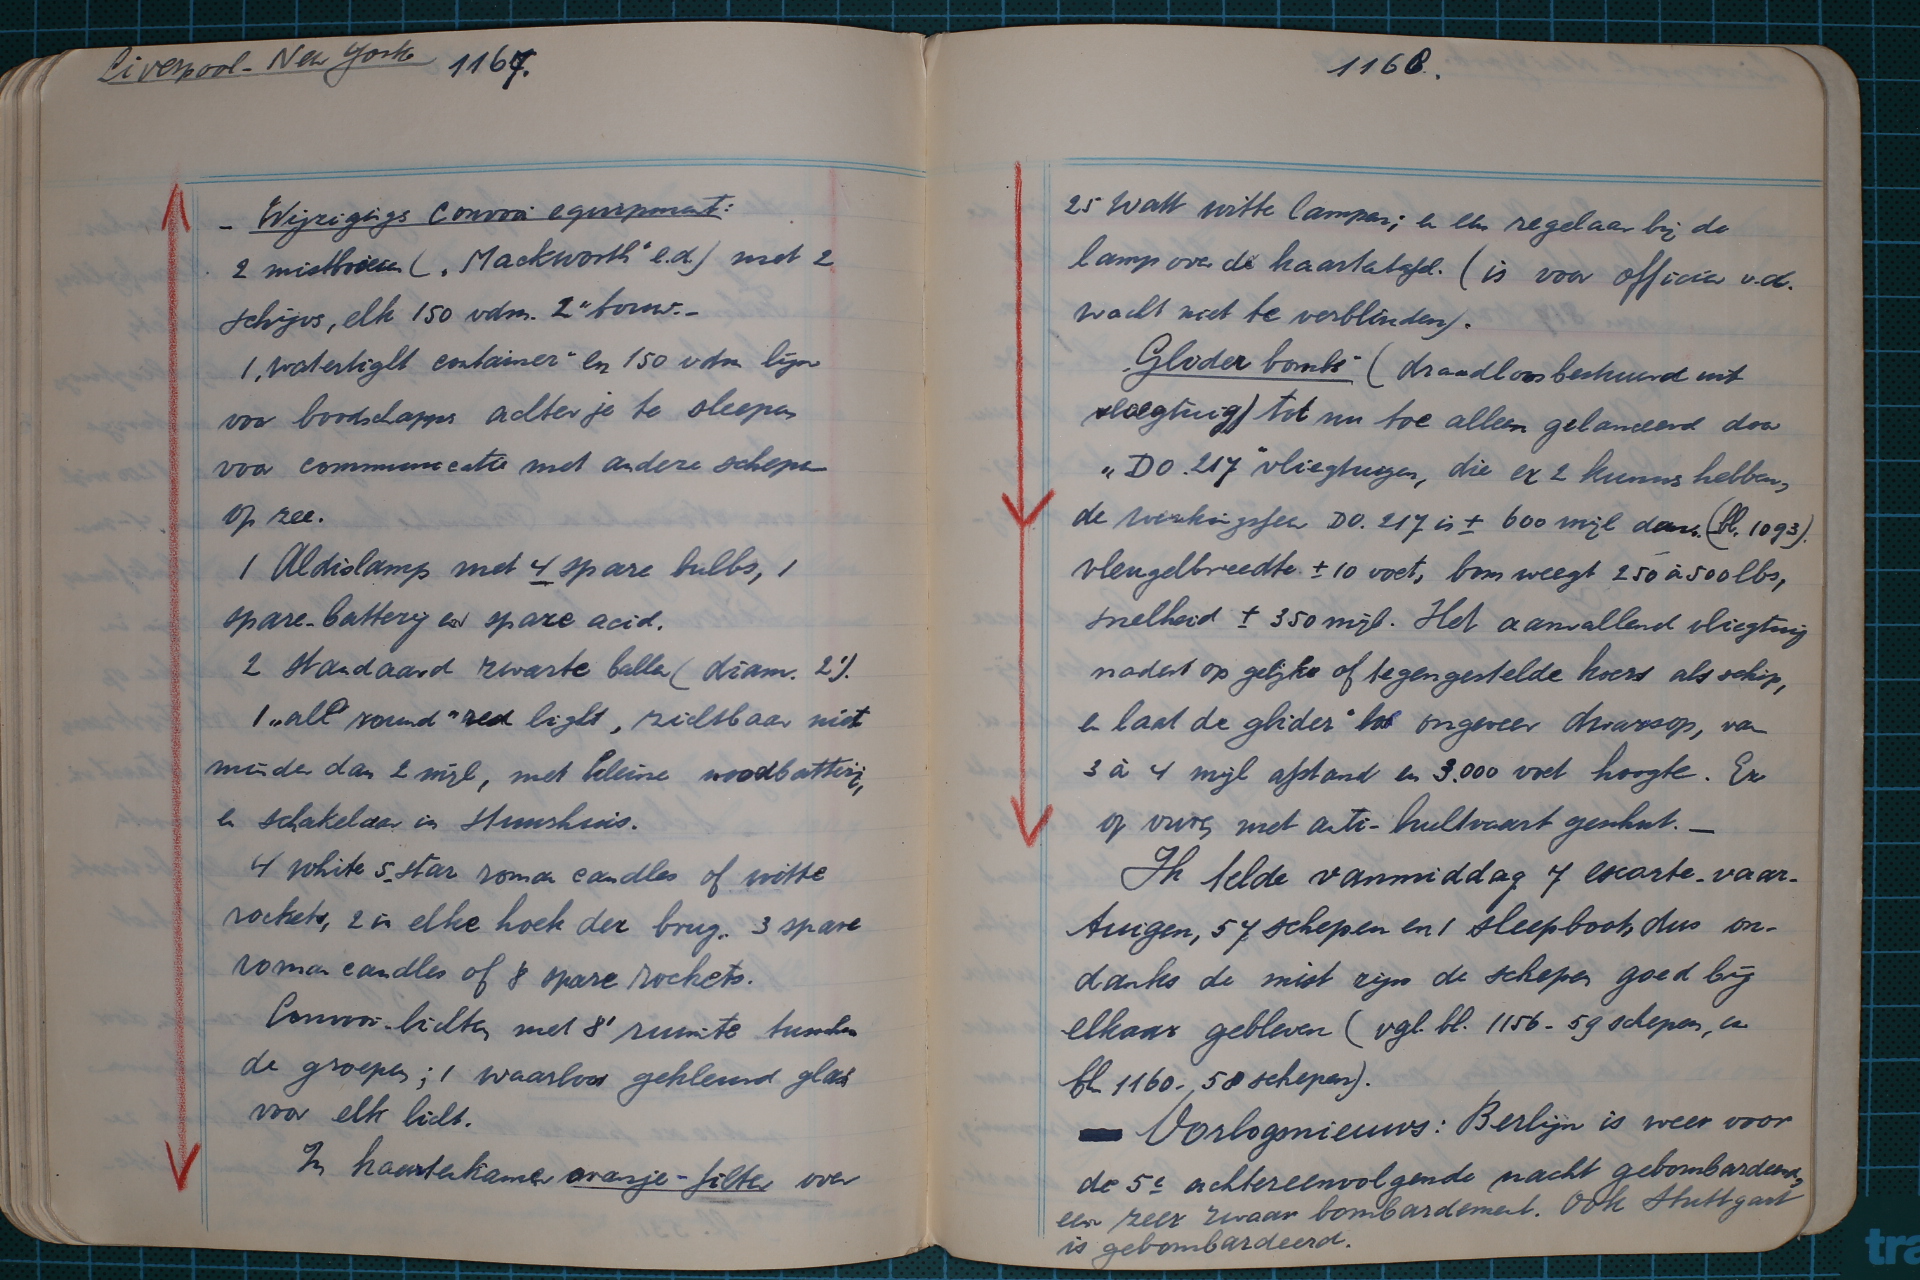 Liverpool - New York 1167.
- Wijzigings Convooi equipment:
2 mistboeien („Mackworth" e.d.) met 2
schijvs, elk 150 vdm. 2" touw.-
1 „watertight container" en 150 vdm lijn
voor boodschappen achter je te sleepen
voor communicatie met andere schepen
op zee.
1 Aldislamp met 4 spare bulbs, 1
spare-battery en spare acid.
2 standaard zwarte ballen (diam. 2').
1 „all round" red light, zichtbaar niet
minder dan 2 mijl, met kleine noodbatterij,
en schakelaar in stuurhuis.
4 white 5-star roman candles of witte
rockets, 2 in elke hoek der brug. 3 spare
roman candles of 8 spare rockets.
Convooi-lichten met 8' ruimte tusschen
de groepen; 1 waarloos gekleurd glas
voor elk licht.
In kaartenkamer oranje-filter over
1168.
25 Watt witte lampen; en een regelaar bij de
lamp over de kaartetafel. (is voor officier v.d.
wacht niet te verblinden).
„Glider bomb" (draadloos bestuurd uit
vliegtuig) tot nu toe alleen gelanceerd door
„DO. 217" vliegtuigen, die er 2 kunnen hebben,
de werkingsfeer DO. 217 is ± 600 mijl (bl. 1093).
vleugelbreedte ± 10 voet, bom weegt 250 à 500 lbs,
snelheid ± 350 mijl. Het aanvallend vliegtuig
nadert op gelijke of tegengestelde koers als schip,
en laat de glider" los ongeveer dwarsop, van
3 à 4 mijl afstand en 3.000 voet hoogte. Er
op vuren met anti-bultvaart geschut. -
Ik telde vanmiddag 7 escorte-vaar-
tuigen, 57 schepen en 1 sleepboot, dus on-
danks de mist zijn de schepen goed bij
elkaar gebleven (vgl. bl. 1156 - 59 schepen, en
bl. 1160 - 58 schepen).
Oorlogsnieuws: Berlijn is weer voor
de 5e achtereenvolgende nacht gebombardeerd,
een zeer zwaar bombardement. Ook Stuttgart
is gebombardeerd.